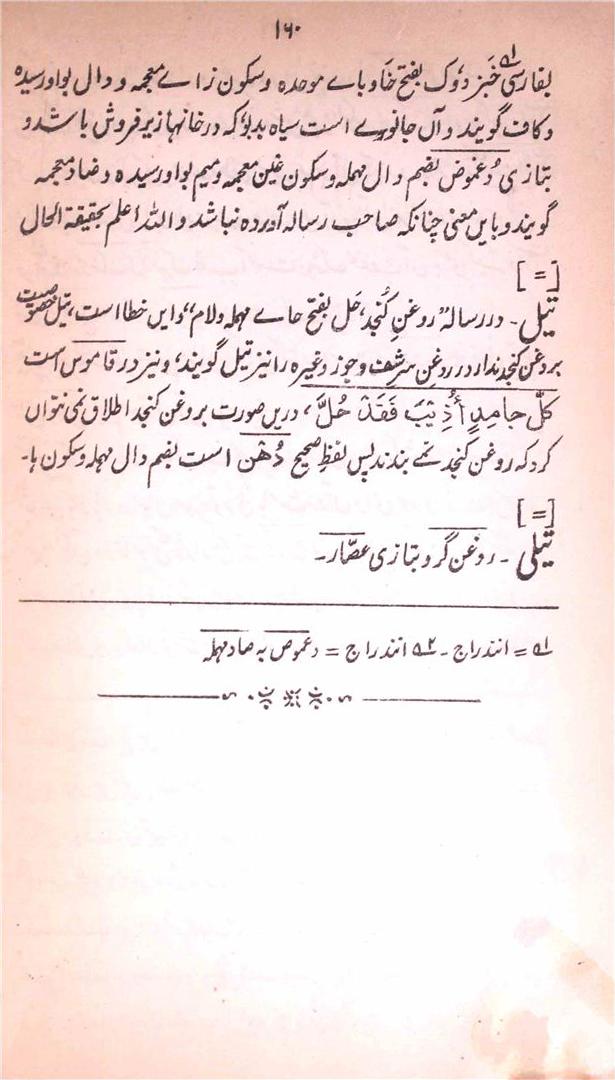 ۱۶۰
بفارسی خَبَز دُوک بفتح خاو باے موحدہ و سکون زاے معجمہ و دال بواو رسیدہ
و کاف گویند و آں جانورے است سیاہ بدبو کہ در خانہا زیر فروش باشد و
بتازی دُعموض بضم دال مہملہ و سکون غین معجمہ و میم بواو رسیدہ و ضاد معجمہ
گویند و بایں معنی چنانکہ صاحب رسالہ آوردہ نباشد و اللہ اعلم بحقیقۃ الحال
[=]
تیل۔ در رسالہ "روغنِ کُنجد، حَل بفتح حاے مہملہ و لام"، و ایں خطا است، تیل خصوصیت
بروغن کنجد ندارد روغنِ سرشف و جوز وغیرہ را نیز تیل گویند، و نیز در قاموس است
کلّ جامِدٍ أُذِیْبَ فَقَدْ حُلَّ، دریں صورت بر وغن کنجد اطلاق نمی تواں
کرد کہ روغن کنجد نمے بندد پس لفظِ صحیح دُهْن است بضم دال مہملہ و سکون ہا۔
[=]
تیلی۔ روغن گر و بتازی عصّار۔
۱ = انندراج۔ ۲ انندراج = دعموص بہ صاد مہملہ